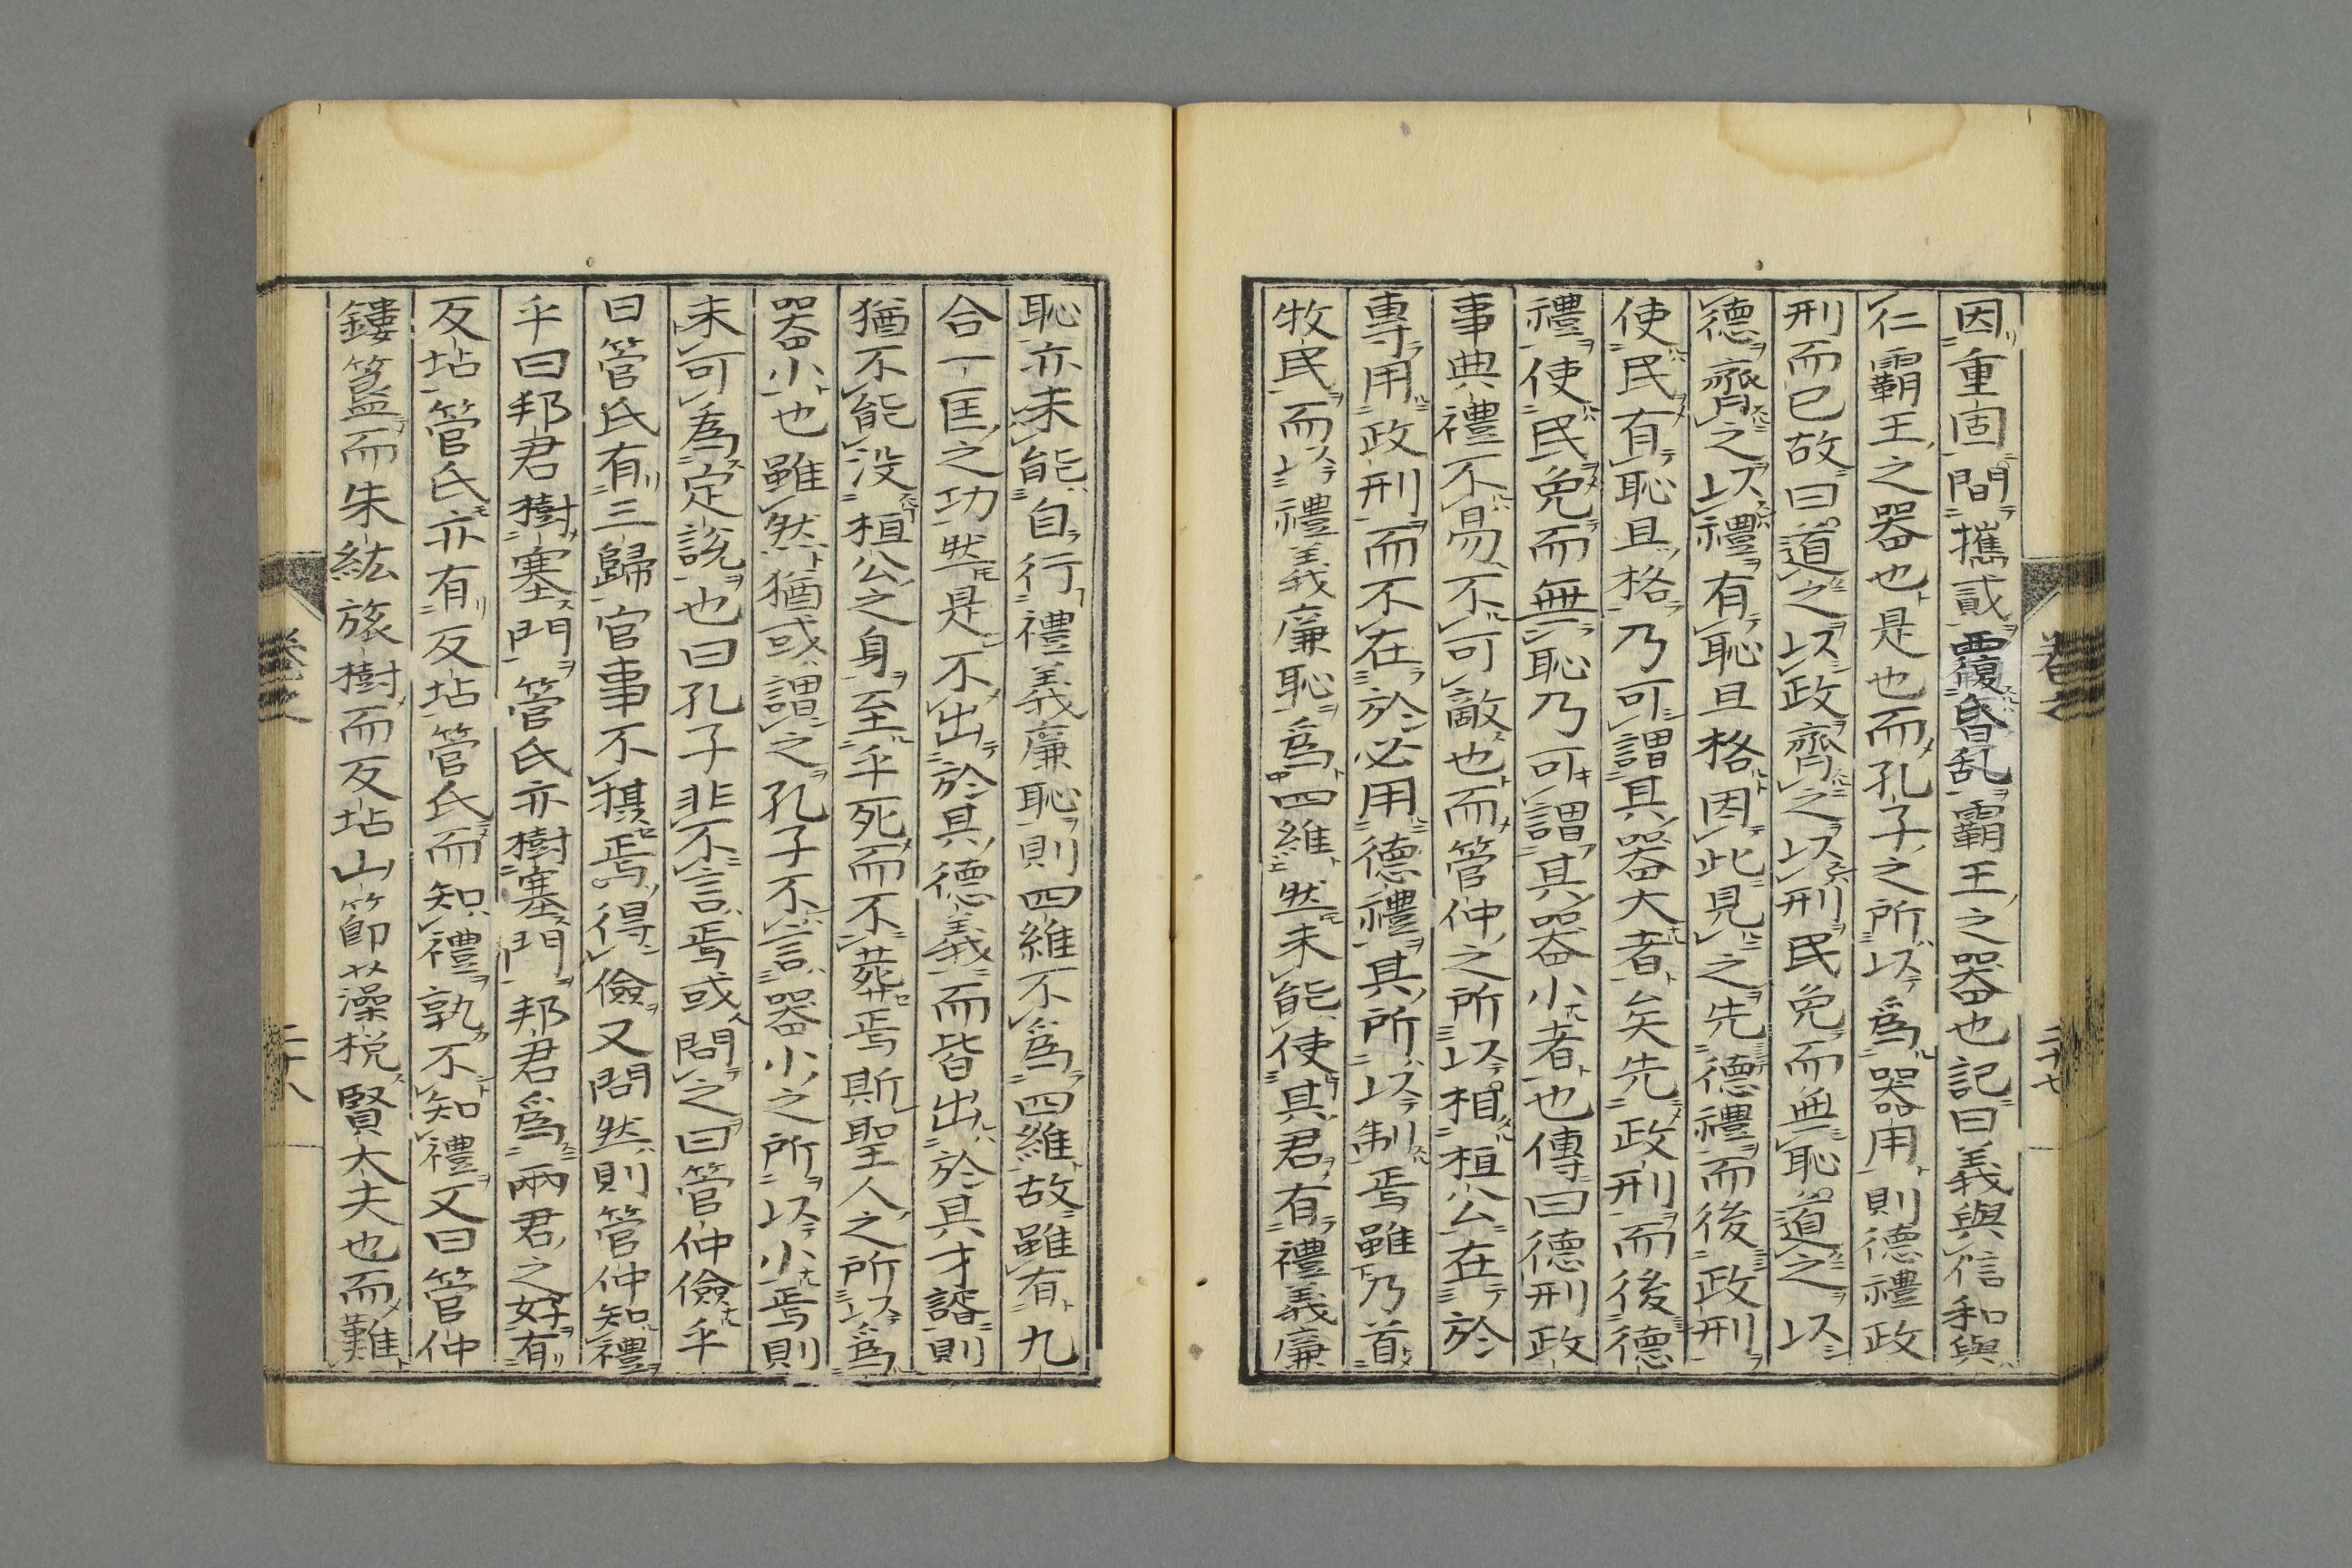 因重固間攜貳覆昏乱霸王之器也記曰義與信和與
仁霸王之器也是也而孔子之所以為器用則德禮政
刑而已故曰道之以政齊之以刑民免而無恥道之以
德齊之以禮有恥且格因此見之先德禮而後政刑
使民有恥且格乃可謂其器大者矣先政刑而後德
禮使民免而無恥乃可謂其器小者也傳曰德刑政
事典禮不易不可敵也而管仲之所以相桓公在於
專用政刑而不在於必用德禮其所以制焉雖乃首
牧民而以禮義廉恥為四維然未能使其君有禮義廉
恥亦未能自行禮義廉恥則四維不為四維故雖有九
合一匡之功然是不出於其德義而皆出於其才諝則
猶不能没桓公之身至乎死而不葬焉斯聖人之所以為
器小也雖然猶或謂之孔子不言器小之所以小焉則
未可為定說也曰孔子非不言焉或問之曰管仲儉乎
曰管氏有三歸官事不摂焉得儉又問然則管仲知禮
乎曰邦君樹塞門管氏亦樹塞門邦君為兩君之好有
反坫管氏亦有反坫管氏而知禮孰不知禮又曰管仲
鏤簋而朱紘旅樹而反坫山節藻梲賢大夫也而難
卷之
二十七
卷之
二十八